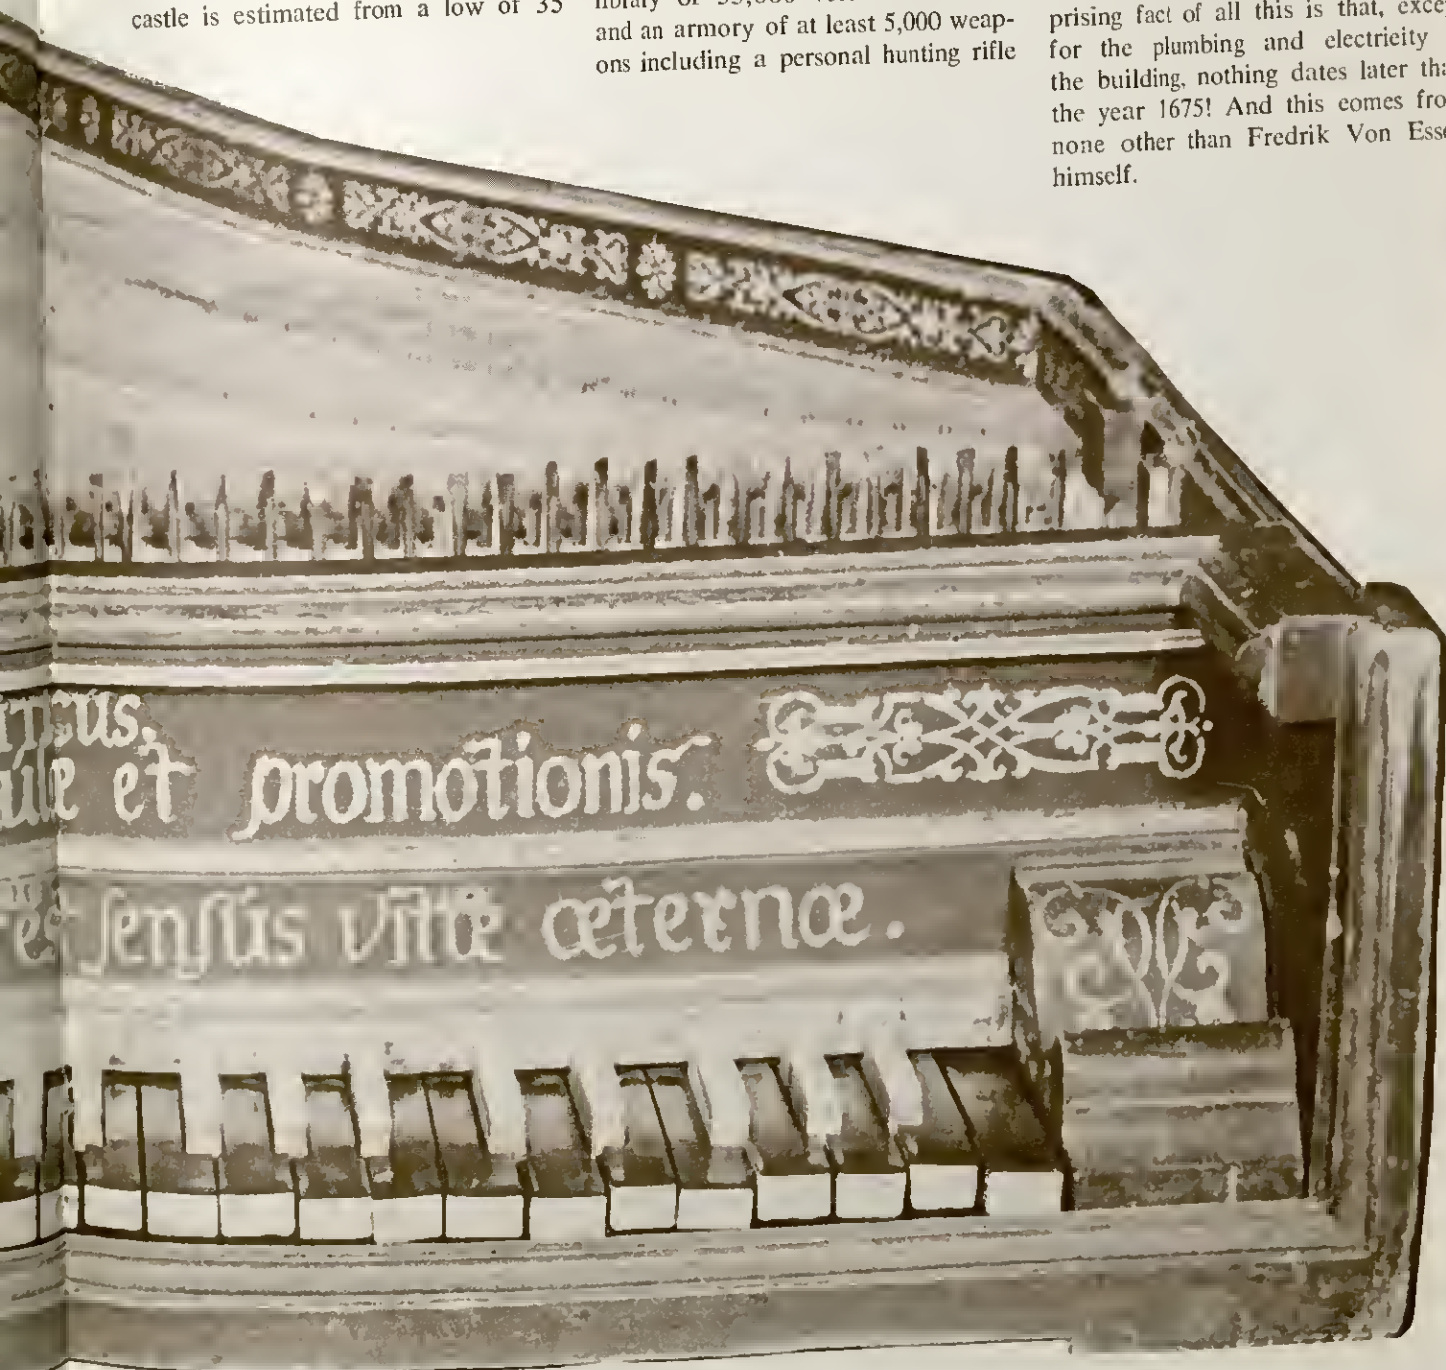 castle is estimated from a low of 35
and an armory of at least 5,000 weap-
ons including a personal hunting rifle
prising fact of all this is that,
for the plumbing and electricity
the building, nothing dates later
the year 1675! And this comes
none other than Fredrik Von
himself.
et promotionis.
senſus vitæ æternæ.